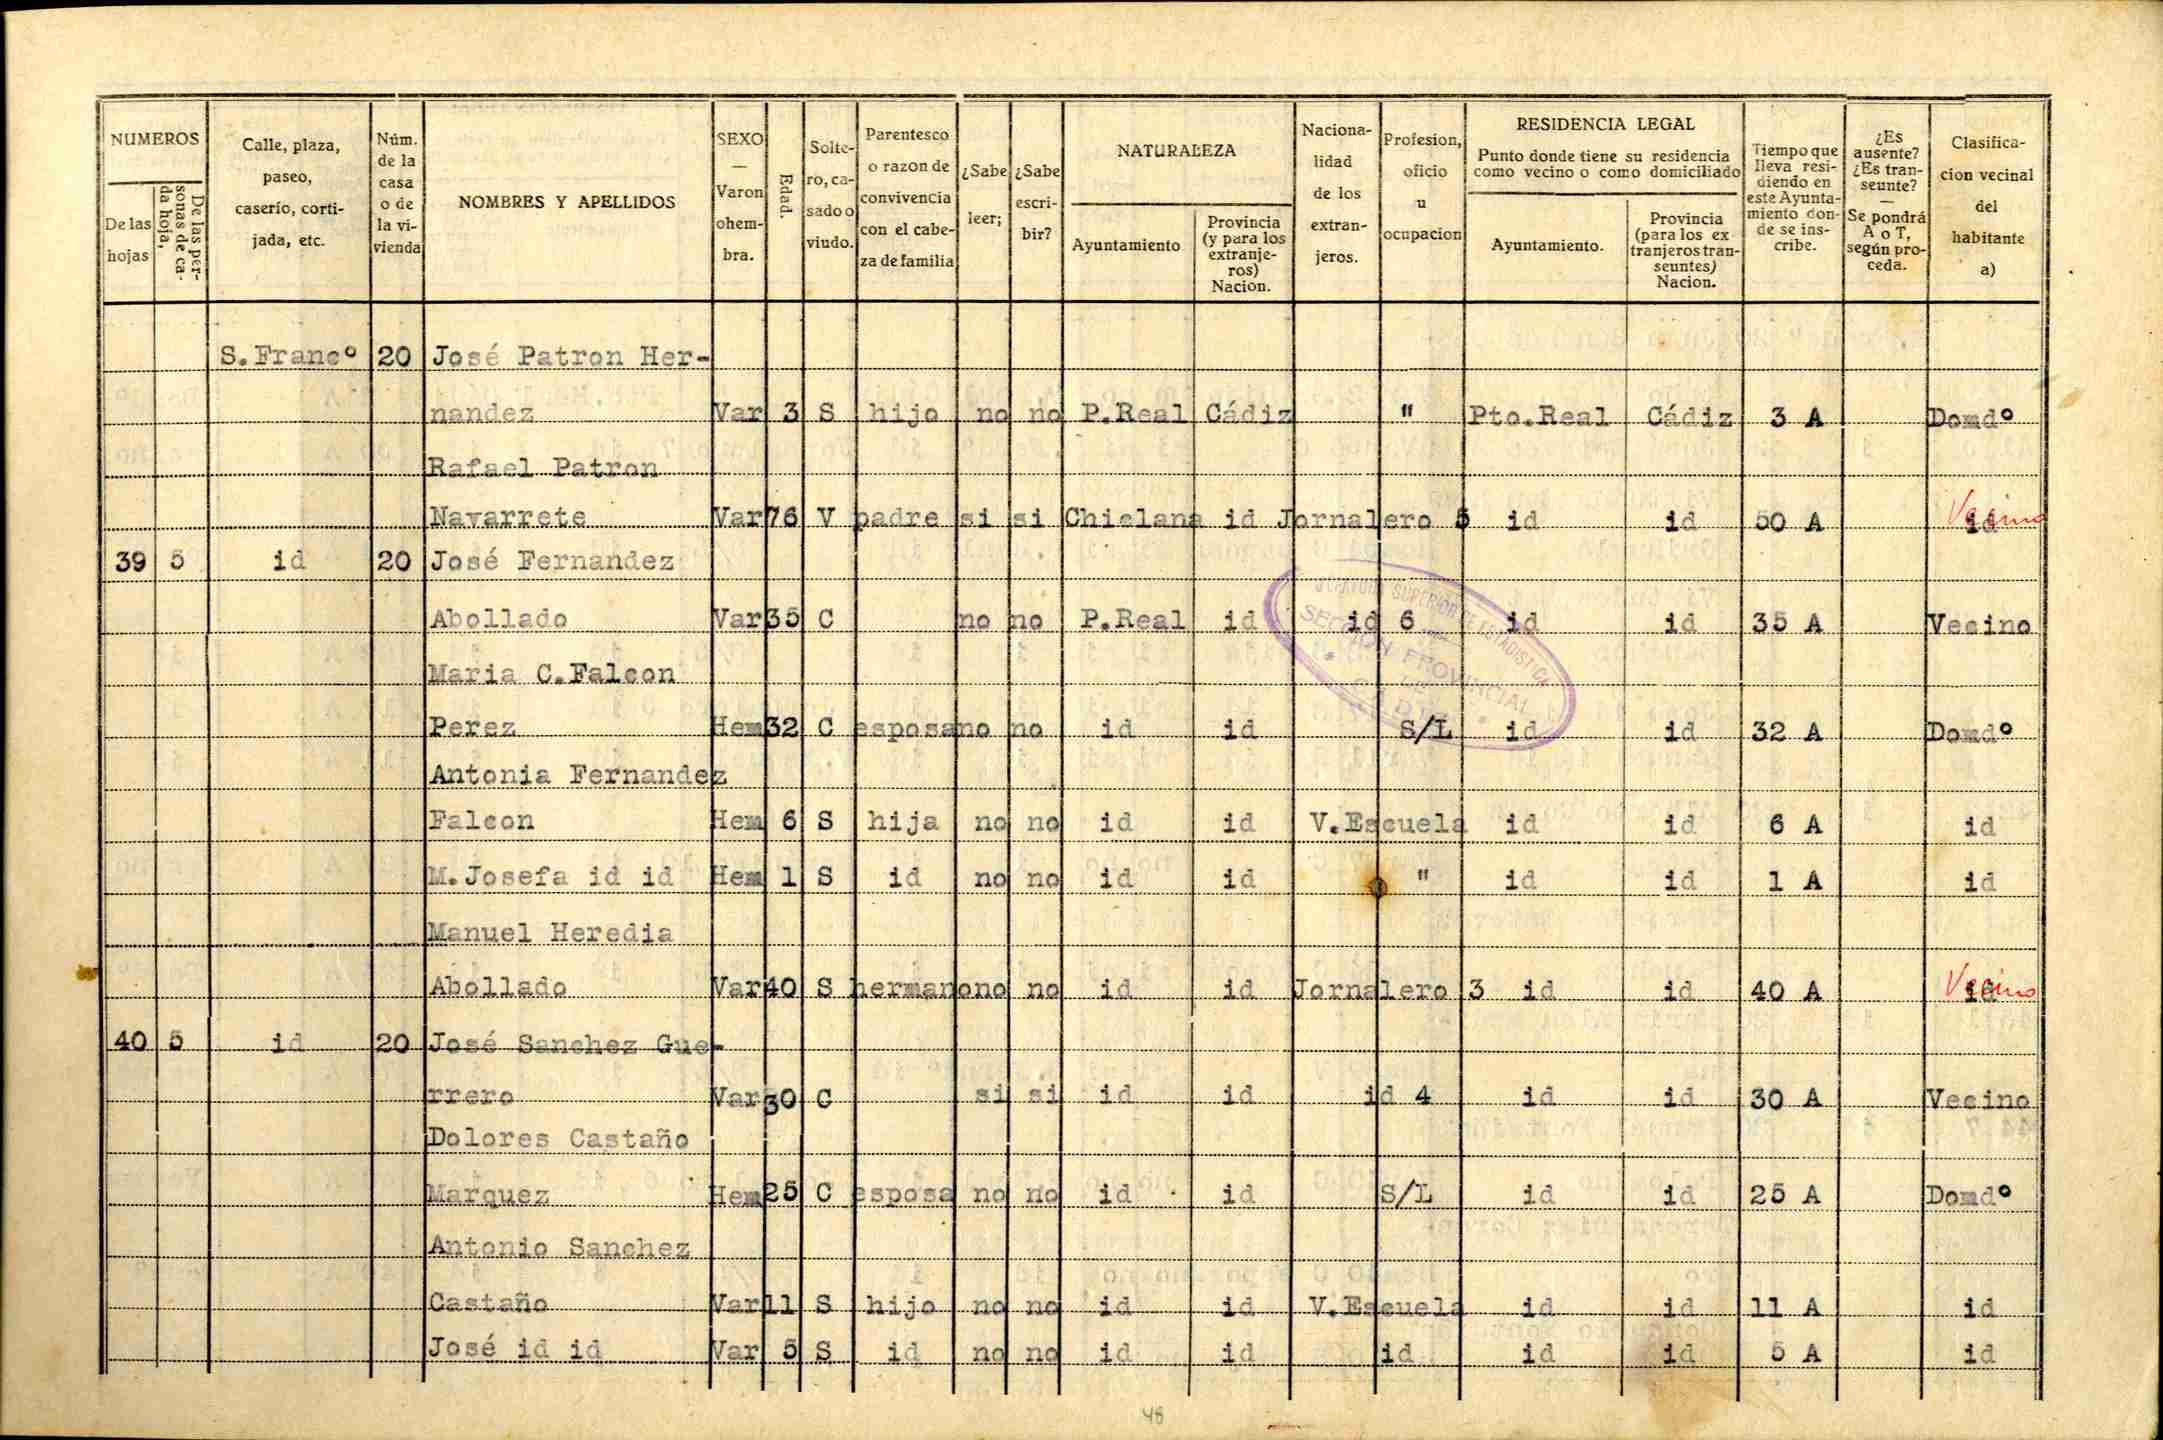 NUMEROS
De las hojas
De las personas de cada hoja.
Calle, plaza, paseo, caserío, cortijada, etc.
Núm. de la casa o de la vivienda
NOMBRES Y APELLIDOS
SEXO — Varon ohembra.
Edad.
Soltero, casado o viudo.
Parentesco o razon de convivencia con el cabeza de familia
¿Sabe leer;
¿Sabe escribir?
NATURALEZA
Ayuntamiento
Provincia (y para los extranjeros) Nacion.
Nacionalidad de los extranjeros.
Profesion, oficio u ocupacion
RESIDENCIA LEGAL
Punto donde tiene su residencia como vecino o como domiciliado
Ayuntamiento.
Provincia (para los extranjeros transeuntes) Nacion.
Tiempo que lleva residiendo en este Ayuntamiento donde se inscribe.
¿Es ausente? ¿Es transeunte? — Se pondrá A o T, según proceda.
Clasificacion vecinal del habitante a)
S.Francº 20 José Patron Her-
nandez Var 3 S hijo no no P.Real Cádiz " Pto.Real Cádiz 3 A Domdº
Rafael Patron
Navarrete Var 76 V padre si si Chiclana id Jornalero 5 id id 50 A id Vecino
39 5 id 20 José Fernandez
Abollado Var 35 C no no P.Real id id 6 id id 35 A Vecino
Maria C.Falcon
Perez Hem 32 C esposa no no id id S/L id id 32 A Domdº
Antonia Fernandez
Falcon Hem 6 S hija no no id id V.Escuela id id 6 A id
M.Josefa id id Hem 1 S id no no id id " id id 1 A id
Manuel Heredia
Abollado Var 40 S hermano no no id id Jornalero 3 id id 40 A id Vecino
40 5 id 20 José Sanchez Gue-
rrero Var 30 C si si id id id 4 id id 30 A Vecino
Dolores Castaño
Marquez Hem 25 C esposa no no id id S/L id id 25 A Domdº
Antonio Sanchez
Castaño Var 11 S hijo no no id id V.Escuela id id 11 A id
José id id Var 5 S id no no id id id id id 5 A id
JEFATURA SUPERIOR DE ESTADISTICA
SECCION PROVINCIAL
DE
CADIZ
48